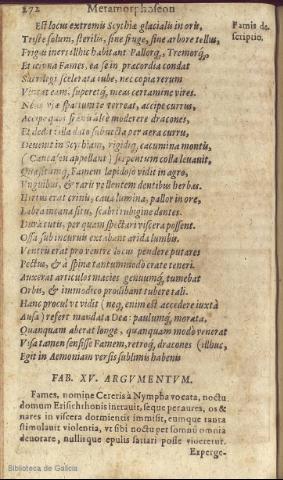 272 Metamorphaseon
Est locus extremis Scythiæ glacialis in oris, Famis de-
Triste solum, sterilis, sine fruge, sine arbore tellus, scriptio.
Frigus iners illhic habitant Pallorq́, Tremorq́,
Et ieiuna Fames, ea se in præcordia condat
Sacrilegi scelerata iube, nec copia rerum
Vincat eam: superetq́, meas certamine vires.
Neue viæ spatium te terreat, accipe currus,
Accipe quos frænis altè moderere dracones,
Et dedit illa dato subuecta per aera curru,
Deuenit in Scythiam, rigidiq́, cacumina montis,
(Caucason appellant) serpentum colla leuauit,
Quæsitamq́, Famem lapidoso vidit in agro,
Vnguibus, & raris vellentem dentibus herbas.
Hirtus erat crinis, caua lumina, pallor in ore,
Labra incana situ, scabri rubigine dentes.
Dura cutis, per quam spectari viscera possent.
Ossa sub incuruis extabant arida lumbis.
Ventris erat pro ventre locus: pendere putares
Pectus, & à spinæ tantummodo crate teneri.
Auxerat articulos macies genuumq́, tumebat
Orbis, & immodico prodibant tubere tali.
Hanc procul vt vidit (neq́, enim est accedere iuxtà
Ausa) refert mandata Deæ: paulumq́, morata,
Quanquam aberat longe, quanquam modo venerat
Visa tamen sensisse Famem, retroq́, dracones (illhuc,
Egit in Aemoniam versis sublimis habenis
FAB. XV. ARGVMENTVM.
Fames, nomine Cereris à Nympha vocata, noctu
domum Erisichthonis intrauit, seque per aures, os &
nares in viscera dormientis immisit, eumque tanta
stimulauit violentia, vt sibi noctu per somnũ omnia
deuorare, nullisque epulis satiari posse videretur.
Experge-
Biblioteca de Galicia